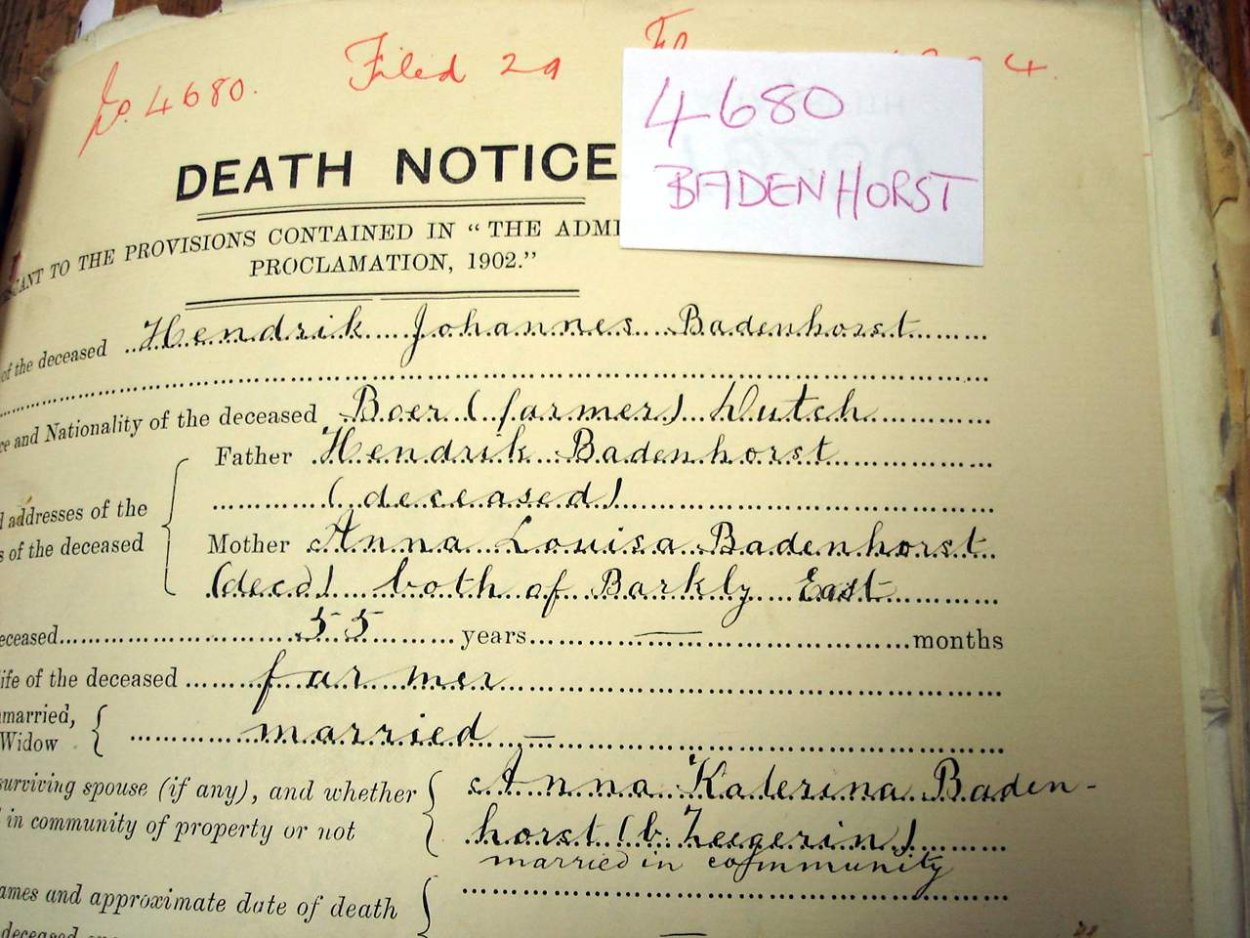 No. 4680. Filed 29 4.
4680
BADENHORST
DEATH NOTICE
TO THE PROVISIONS CONTAINED IN "THE
PROCLAMATION, 1902."
of the deceased Hendrik Johannes Badenhorst
and Nationality of the deceased Boer (farmer) Dutch
Father Hendrik Badenhorst
(deceased)
addresses of the
of the deceased
Mother Anna Louisa Badenhorst
(decd) both of Barkly East
55 years — months
of the deceased farmer
married —
Widow
surviving spouse (if any), and whether
in community of property or not
Anna Katerina Baden-
horst (b. Zeegerin)
married in community
and approximate date of death